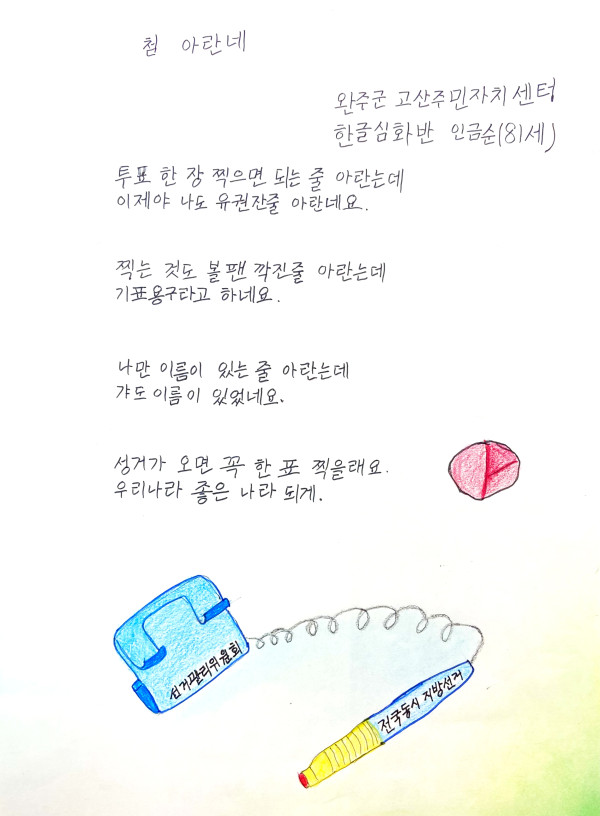 첨 아란네
완주군 고산주민자치센터
한글심화반 인금순(81세)
투표 한 장 찍으면 되는 줄 아란는데
이제야 나도 유권잔줄 아란네요.
찍는 것도 볼팬 깍진줄 아란는데
기표용구타고 하네요.
나만 이름이 있는 줄 아란는데
갸도 이름이 있었네요.
성거가 오면 꼭 한 표 찍을래요.
우리나라 좋은 나라 되게.
선거관리위원회
전국동시 지방선거